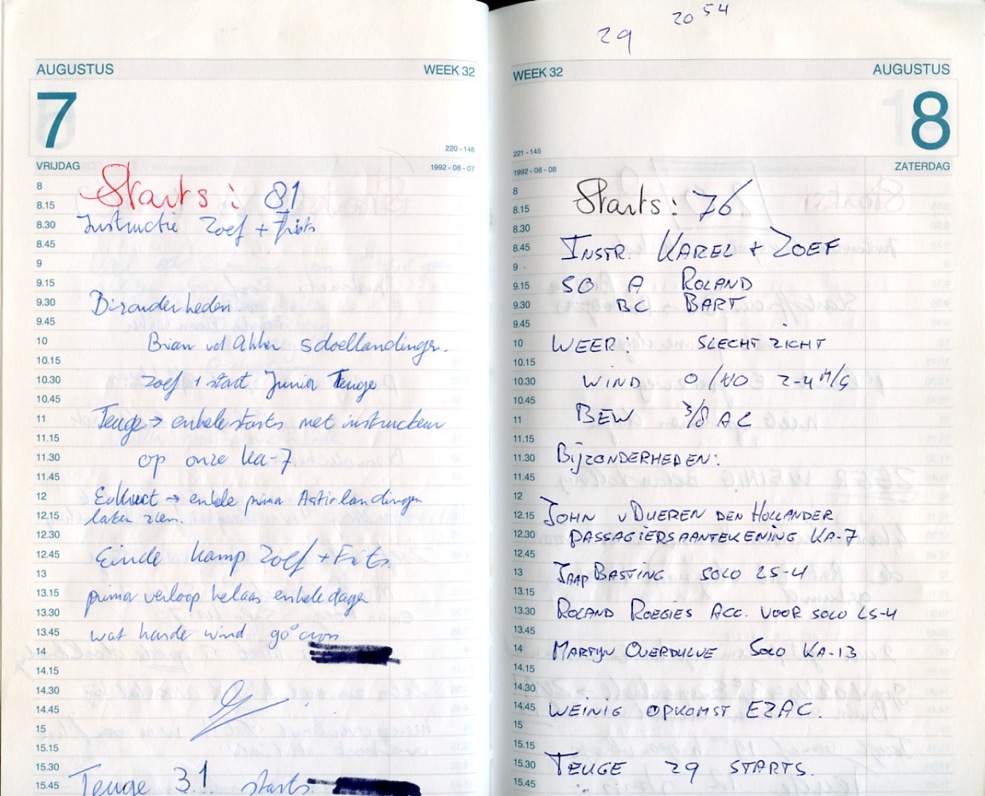 AUGUSTUS WEEK 32
7
220 - 146
VRIJDAG 1992 - 08 - 07
8
8.15 Starts: 81
8.30 Instructie Zoef + Frits
8.45
9
9.15
9.30 Bizonderheden
9.45
10 Brian vd Akker sdoellandingen.
10.15
10.30 Zoef + start Junior Teuge
10.45
11 Teuge → enkele starts met instructeur
11.15
11.30 op onze Ka-7
11.45
12 → enkele prima Astir landingen
12.15 laten zien.
12.30
12.45 Einde kamp Zoef + Frits.
13
13.15 prima verloop helaas enkele dagen
13.30
13.45 wat harde wind
14
14.15
14.30
14.45
15
15.15
15.30 Teuge 31 starts
15.45
29 20 54
WEEK 32 AUGUSTUS
8
221 - 145
1992 - 08 - 08 ZATERDAG
8
8.15 Starts: 76
8.30
8.45 INSTR. KAREL + ZOEF
9
9.15 SO A ROLAND
9.30 BC BART
9.45
10 WEER: SLECHT ZICHT
10.15
10.30 WIND 0/40 2-4 M/S
10.45
11 BEW 3/8 AC
11.15
11.30 BIJZONDERHEDEN:
11.45
12
12.15 JOHN v DUEREN DEN HOLLANDER
12.30 PASSAGIERSAANTEKENING KA-7
12.45
13 JAAP BASTING SOLO LS-4
13.15
13.30 ROLAND ROEGIES ACC. VOOR SOLO LS-4
13.45
14 MARTIJN OVERDULVE SOLO KA-13
14.15
14.30
14.45 WEINIG OPKOMST EZAC.
15
15.15
15.30 TEUGE 29 STARTS.
15.45